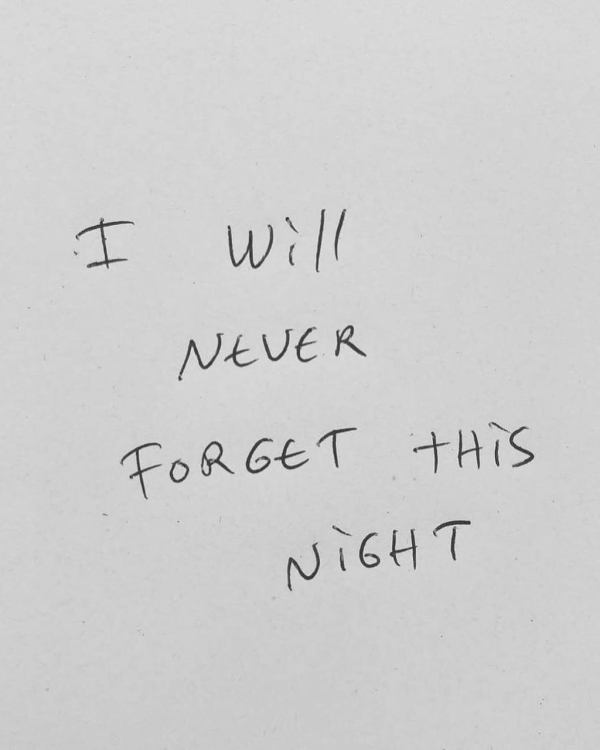 I Will
NEVER
FORGET THIS
NIGHT